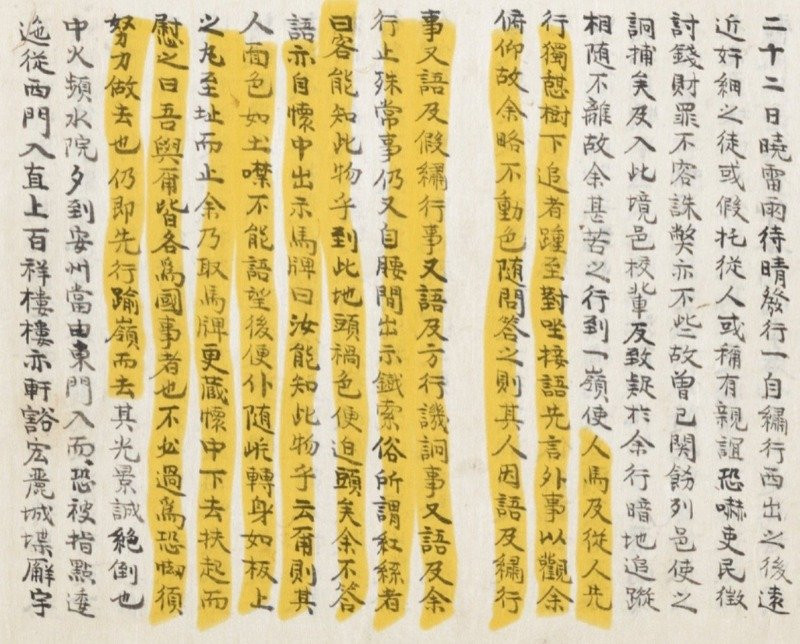 二十二日曉雷雨待晴發行一自繡行西出之後遠
近奸細之徒或假托從人或稱有親誼恐嚇吏民徵
討錢財罪不容誅弊亦不些故曾已関飭列邑使之
詗捕矣及入此境邑校軰反致疑於余行暗地追蹤
相随不離故余甚苦之行到一嶺使人馬及從人先
行獨憇樹下追者踵至對坐接語先言外事以觀余
俯仰故余略不動色随問答之則其人因語及繡行
事又語及假繡行事又語及方行譏詗事又語及余
行止殊常事仍又自腰間出示鐵索俗所謂紅絲者
曰客能知此物乎到此地頭禍色便迫頭矣余不答
語亦自懷中出示馬牌曰汝能知此物乎云爾則其
人面色如土噤不能語望後便仆随屹轉身如板上
之丸至址而止余乃取馬牌更藏懷中下去扶起而
慰之曰吾與爾皆各爲國事者也不必過爲恐㥘須
努力做去也仍即先行踰嶺而去其光景誠絶倒也
中火頻水院夕到安州當由東門入而恐被指點逶
迤從西門入直上百祥樓樓亦軒豁宏麗城堞廨宇